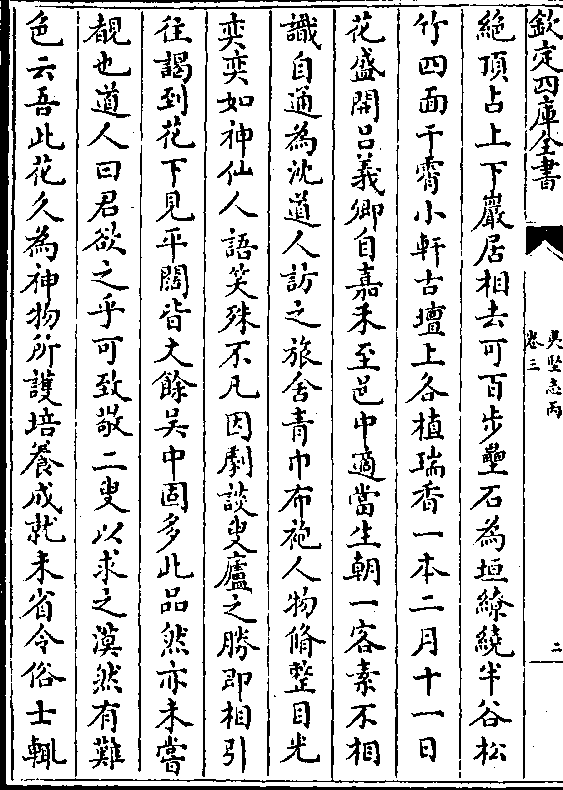 欽定四庫全書
夷堅志丙
卷三
二
絶頂占上下巖居相去可百步壘石為垣繚繞半谷松
竹四面干霄小軒古壇上各植瑞香一本二月十一日
花盛開吕義卿自嘉禾至邑中適當生朝一客素不相
識自通為沈道人訪之旅舍青巾布袍人物脩整目光
奕奕如神仙人語笑殊不凡因劇談叟廬之勝即相引
往謁到花下見平闊皆丈餘吳中固多此品然亦未嘗
覩也道人曰君欲之乎可致敬二叟以求之漠然有難
色云吾此花久為神物所護培養成就未省令俗士輒